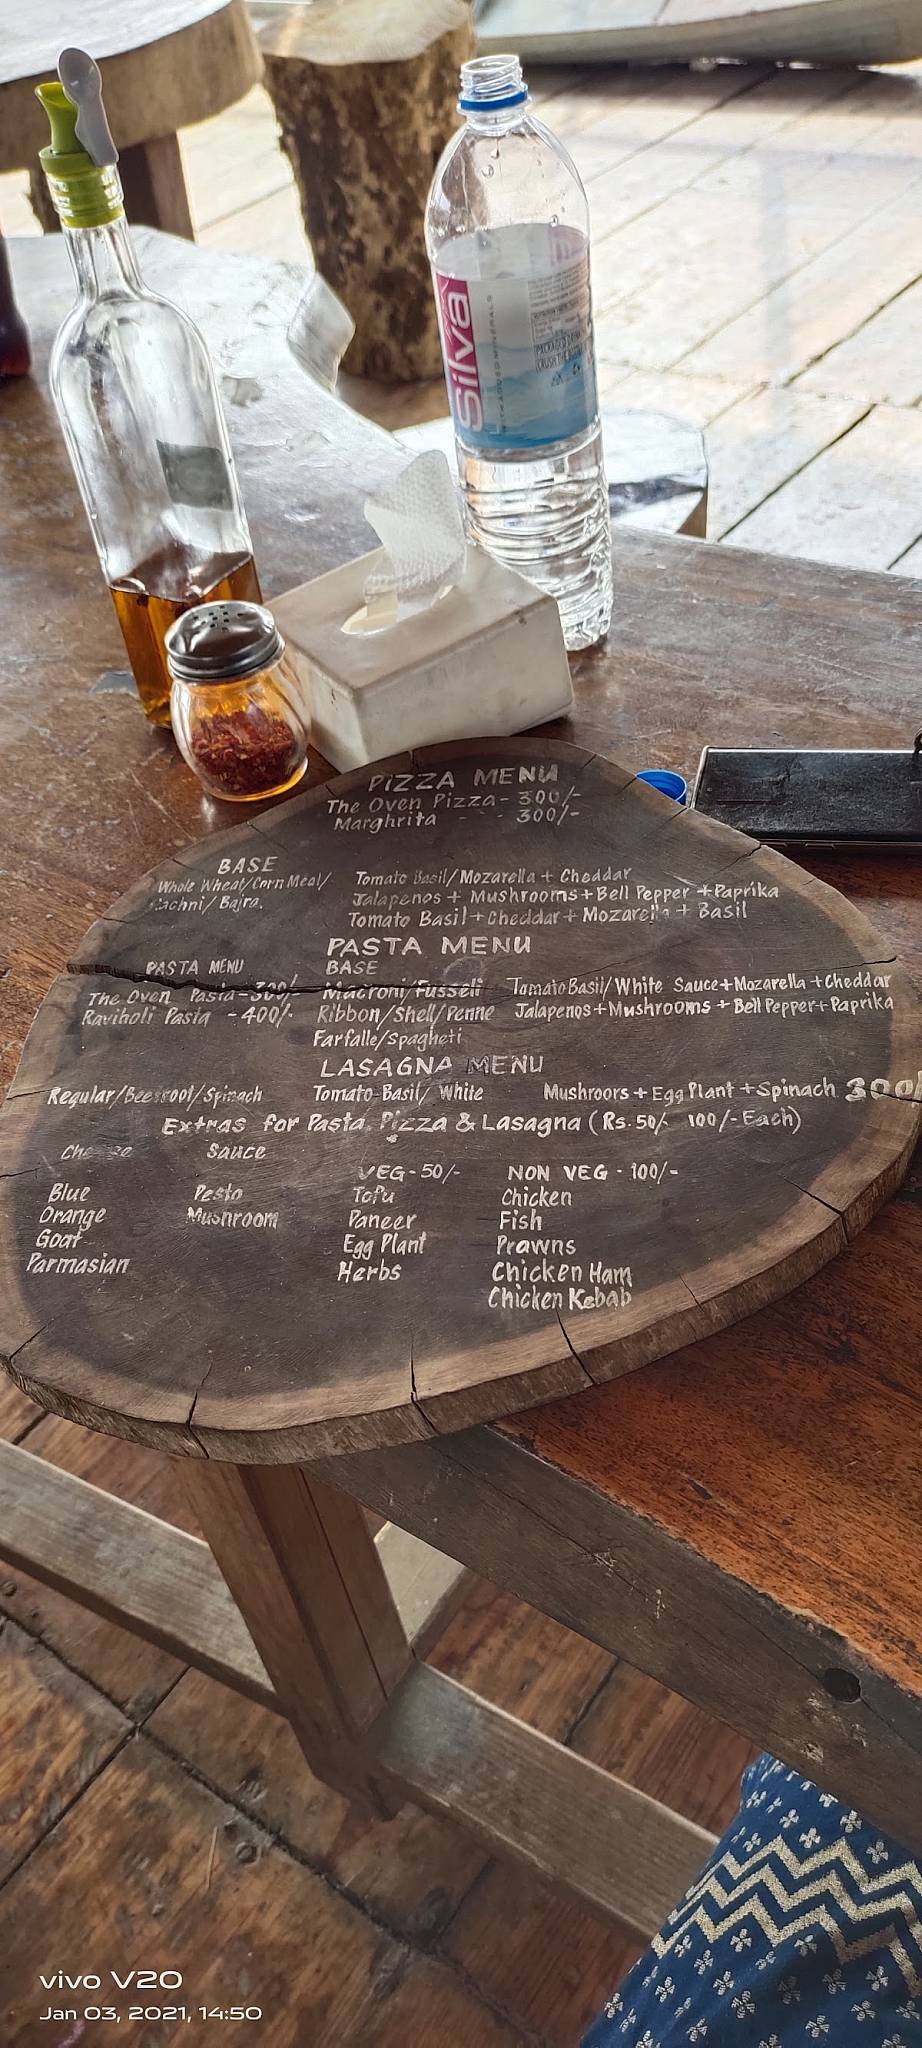 Silva
WITH ADDED MINERALS
PIZZA MENU
The Oven Pizza - 300/-
Marghrita - - 300/-
BASE
Whole Wheat/Corn Meal/ Tomato Basil/Mozarella + Cheddar
Rachni/Bajra. Jalapenos + Mushrooms + Bell Pepper + Paprika
Tomato Basil + Cheddar + Mozarella + Basil
PASTA MENU
PASTA MENU BASE
The Oven Pasta - 300/- Macroni/Fusseli Tomato Basil/White Sauce + Mozarella + Cheddar
Raviholi Pasta - 400/- Ribbon/Shell/Penne Jalapenos + Mushrooms + Bell Pepper + Paprika
Farfalle/Spagheti
LASAGNA MENU
Regular/Beetroot/Spinach Tomato Basil/White Mushroors + Egg Plant + Spinach 300/
Extras for Pasta, Pizza & Lasagna (Rs. 50/- 100/- Each)
Cheese Sauce
VEG - 50/- NON VEG - 100/-
Blue Pesto Tofu Chicken
Orange Mushroom Paneer Fish
Goat Egg Plant Prawns
Parmasian Herbs Chicken Ham
Chicken Kebab
vivo V20
Jan 03, 2021, 14:50